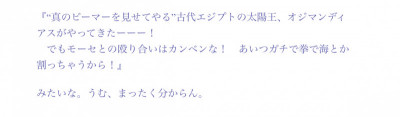 『“真のビーマーを見せてやる”古代エジプトの太陽王、オジマンディ
アスがやってきたーーー！
でもモーセとの殴り合いはカンベンな！　あいつガチで拳で海とか
割っちゃうから！』
みたいな。うむ、まったく分からん。